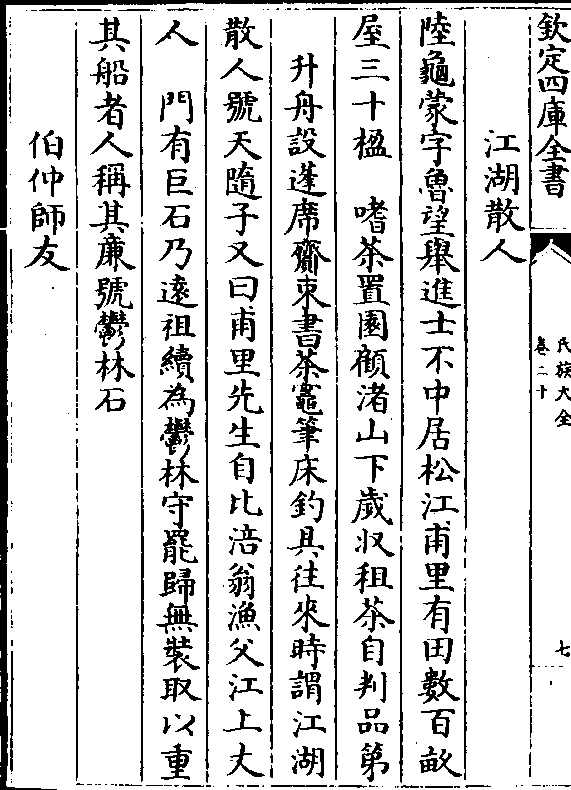 欽定四庫全書
氏族大全
卷二十
七
江湖散人
陸龜蒙字魯望舉進士不中居松江甫里有田數百畝
屋三十楹　嗜茶置園顧渚山下歲收租茶自判品第
升舟設蓬席齎束書茶竈筆床釣具往來時謂江湖
散人號天隨子又曰甫里先生自比涪翁漁父江上丈
人　門有巨石乃遠祖續為鬱林守罷歸無裝取以重
其船者人稱其廉號鬱林石
伯仲師友